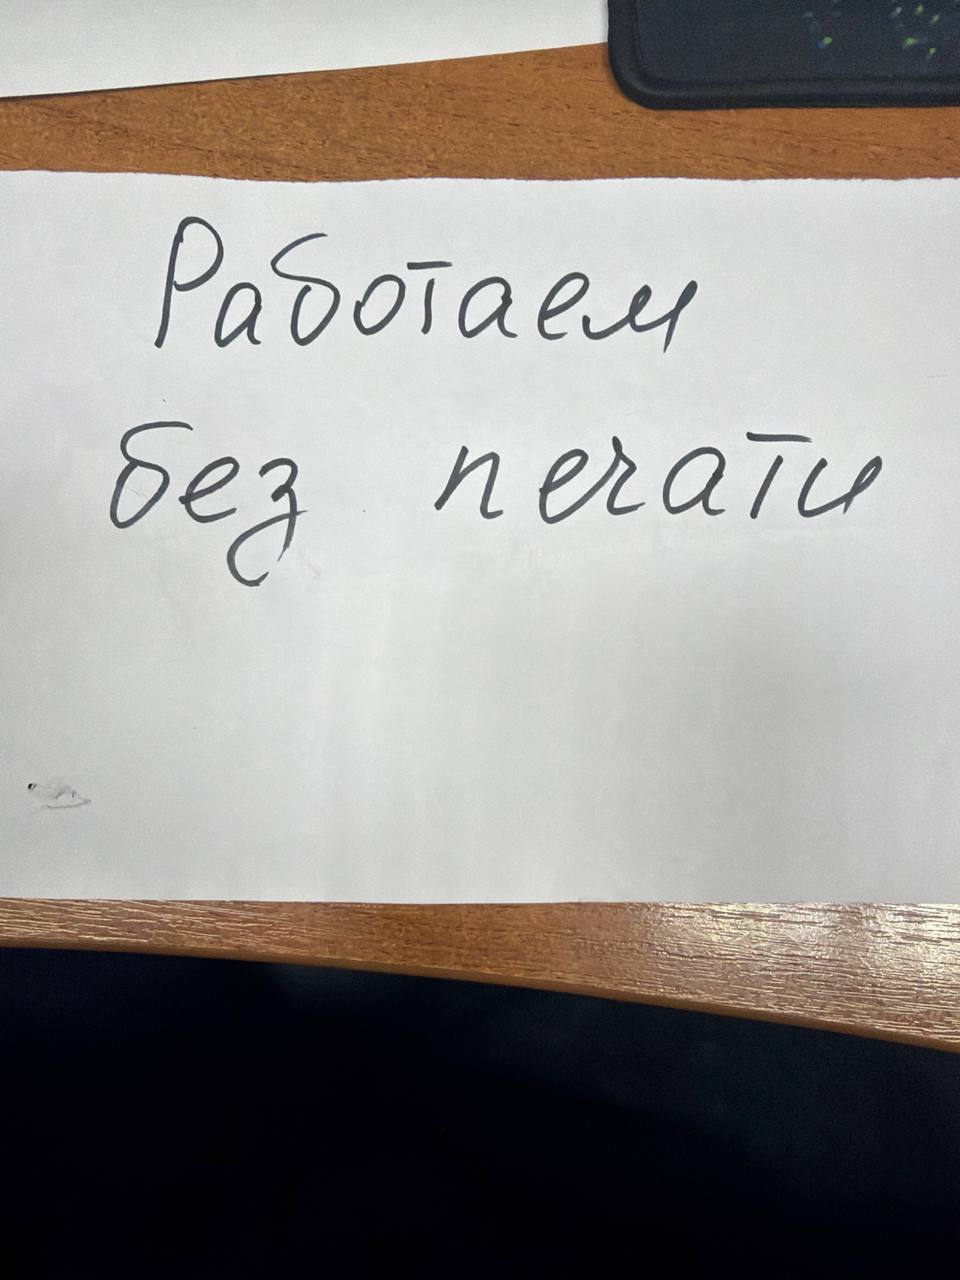 Работаем
без печати